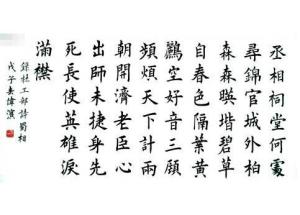 丞相祠堂何處
尋錦官城外柏
森森暎堦碧草
自春色隔葉黄
鸝空好音三顧
頻煩天下計兩
朝開濟老臣心
出師未捷身先
死長使英雄淚
滿襟
錄杜工部詩蜀相
戊子偉濱